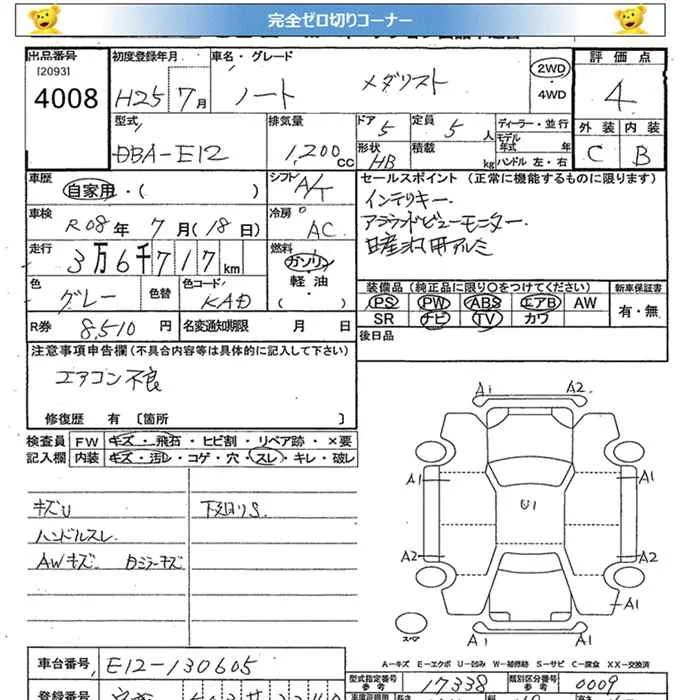 完全ゼロ切りコーナー
出品番号 初度登録年月 車名・グレード 評価点
[2093]
4008 H25 7月 ノート メダリスト 2WD・4WD 4
型式 排気量 ドア 定員 ディーラー・並行 外装 内装
DBA-E12 1,200CC 5 5人 モデル年式 年 C B
形状 HB 積載 kg ハンドル 左・右
車歴 自家用・( ) シフト A/T セールスポイント (正常に機能するものに限ります)
車検 R08年 7月(18日) 冷房 AC インテリキー.
アラウンドビューモニター.
日産汎用アルミ
走行 3万6千717km 燃料 ガソリン・軽油・( )
色 グレー 色替 色コード KAD
装備品(純正品に限り○をつけてください) 新車保証書
PS PW ABS エアB AW 有・無
SR ナビ TV カワ
R券 8,510円 名変通知期限 月 日 後日品
注意事項申告欄(不具合内容等は具体的に記入して下さい)
エアコン不良
修復歴 有 〔箇所 〕
検査員 FW キズ・飛石・ヒビ割・リペア跡・×要
記入欄 内装 キズ・汚レ・コゲ・穴・スレ・キレ・破レ
キズU 下廻りS.
ハンドルスレ
AWキズ Dミラーキズ
A1 A2
A1 A1
U1
A2 A2
A1
A1
スペア
A-キズ E-エクボ U-凹み W-補修跡 S-サビ C-腐食 XX-交換済
車台番号 E12-130605
型式指定番号 参考 17338 類別区分番号 参考 0009
登録番号